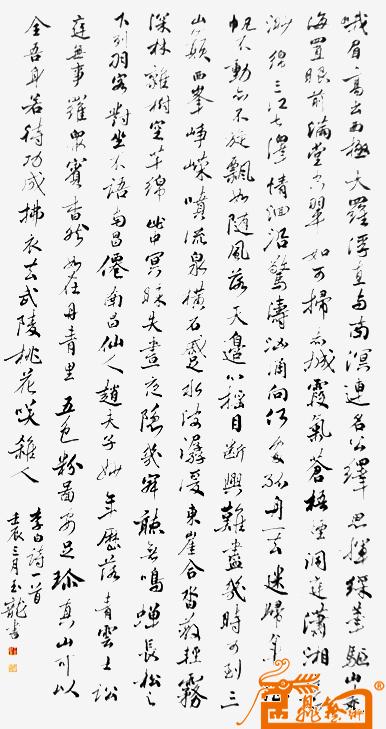 峨眉高出西極天羅浮直與南溟連名公繹思揮綵筆驅山走
海置眼前滿堂空翠如可掃赤城霞氣蒼梧煙洞庭瀟湘意
渺綿三江七澤情洄沿驚濤洶涌向何處孤舟一去迷歸年征
帆不動亦不旋飄如隨風落天邊心搖目斷興難盡幾時可到三
山巔西峯崢嶸噴流泉橫石蹙水波潺湲東崖合沓蔽輕霧
深林雜樹空芊綿此中冥昧失晝夜隱几寂聽無鳴蟬長松之
下列羽客對坐不語南昌僊南昌仙人趙夫子妙年歷落青雲士訟
庭無事羅衆賓杳然如在丹青里五色粉圖安足珍真山可以
全吾身若待功成拂衣去武陵桃花笑殺人
李白詩一首
壬辰三月玉龍書